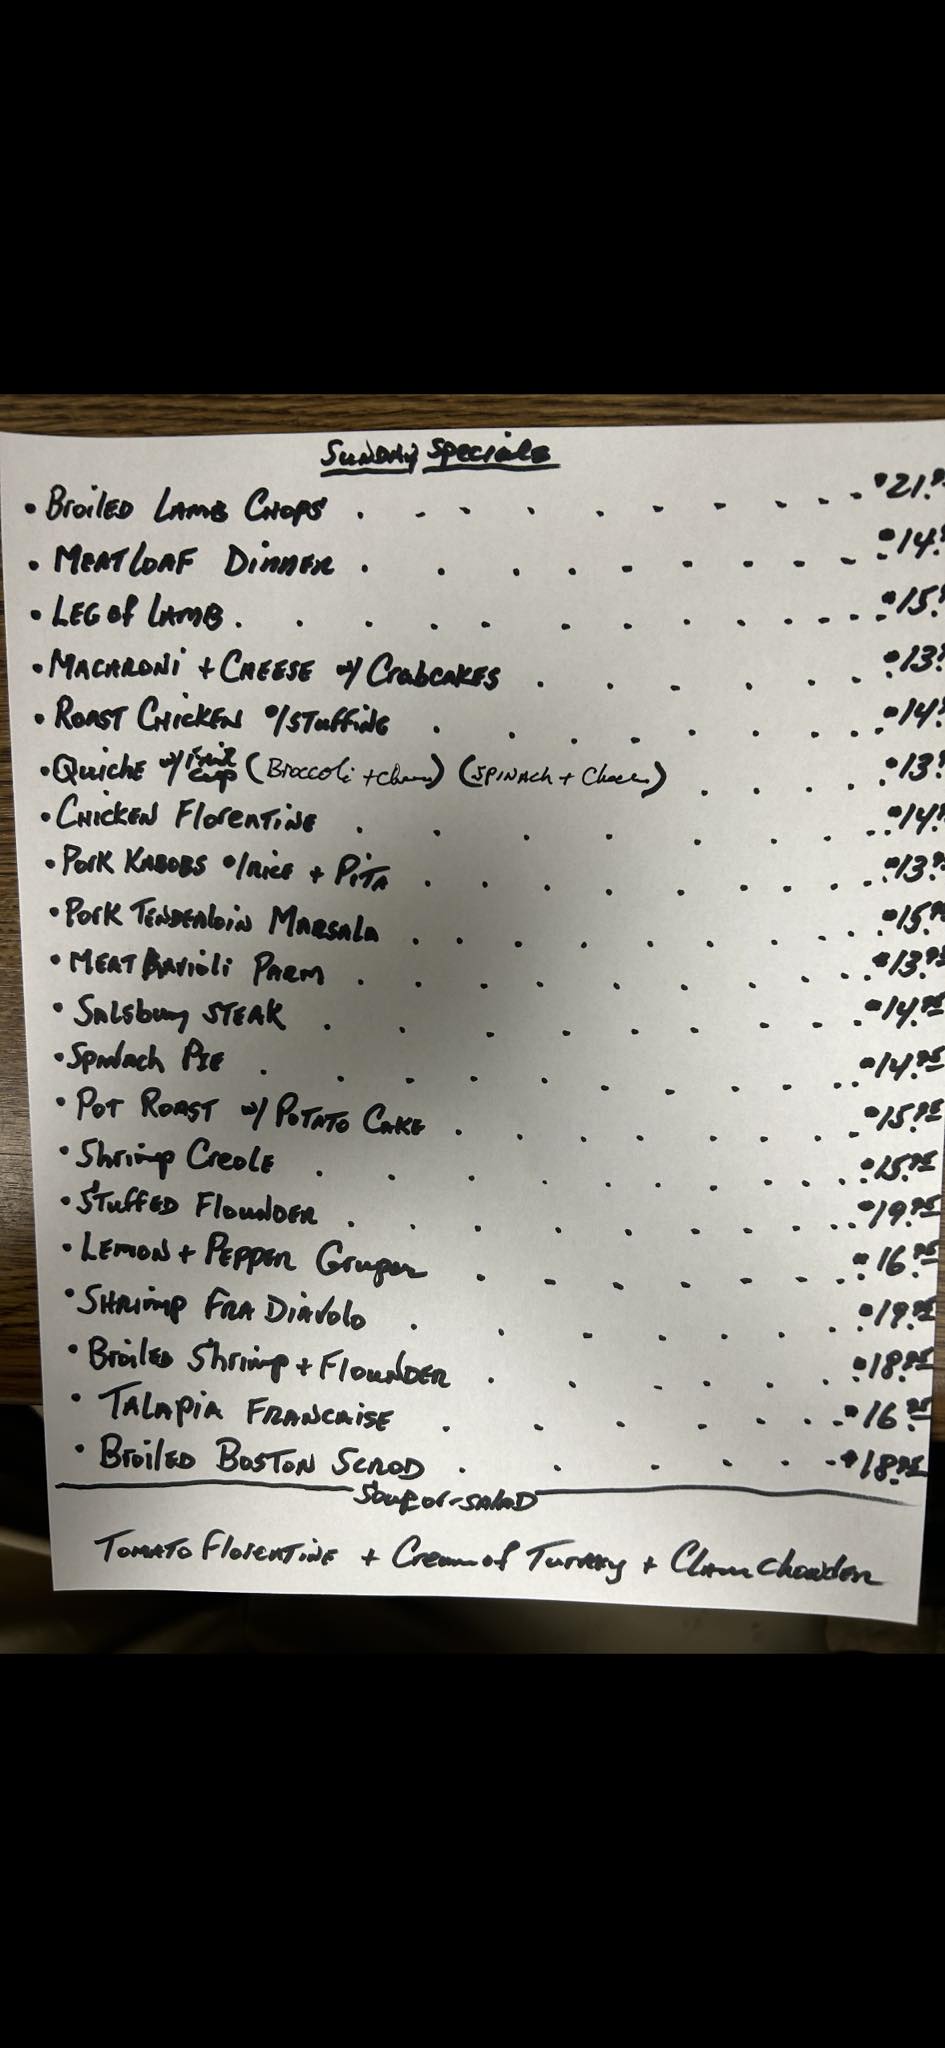 Sunday Specials
• Broiled Lamb Chops . . . . . . . . . $21.
• Meatloaf Dinner . . . . . . . . . $14.
• Leg of Lamb . . . . . . . . . . $15.
• Macaroni + Cheese w/ Crabcakes . . . . . . $13.
• Roast Chicken w/stuffing . . . . . . . $14.
• Quiche w/ fruit cup (Broccoli + Chees) (Spinach + Chees) . . . . $13.
• Chicken Florentine . . . . . . . $14.
• Pork Kabobs w/rice + Pita . . . . . . . . $13.
• Pork Tenderloin Marsala . . . . . . . . $15.
• Meat Ravioli Parm . . . . . . . . . $13.95
• Salsbury Steak . . . . . . . . . $14.95
• Spinach Pie . . . . . . . . . . $14.95
• Pot Roast w/ Potato Cake . . . . . . . . $15.95
• Shrimp Creole . . . . . . . . . $15.95
• Stuffed Flounder . . . . . . . . . $19.95
• Lemon + Pepper Gruper . . . . . . . $16.95
• Shrimp Fra Diavolo . . . . . . . $19.95
• Broiled Shrimp + Flounder . . . . . . $18.95
• Talapia Francaise . . . . . . . . $16.95
• Broiled Boston Scrod . . . . . . $18.95
Soup or salad
Tomato Florentine + Cream of Turkey + Clam Chowder